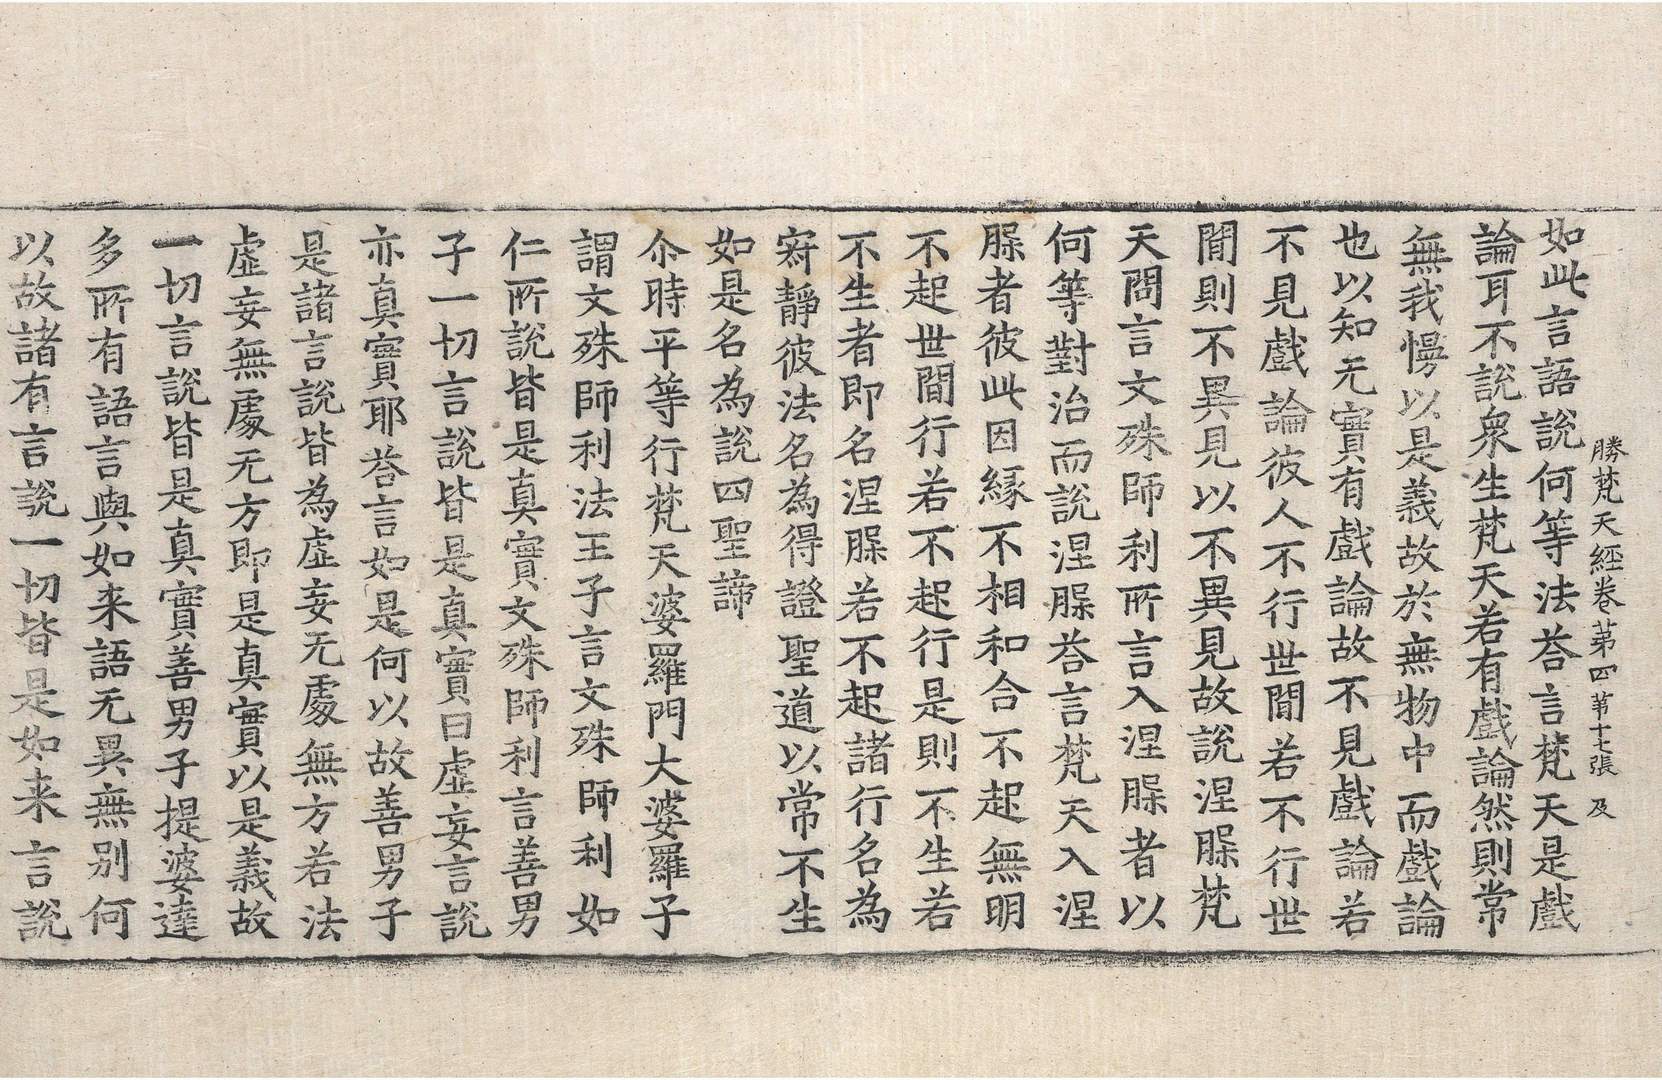 勝梵天經卷第四 第十七張 及
如此言語說何等法荅言梵天是戲
論耳不說衆生梵天若有戲論然則常
無我慢以是義故於無物中而戲論
也以知无實有戲論故不見戲論若
不見戲論彼人不行世閒若不行世
閒則不異見以不異見故說涅槃梵
天問言文殊師利所言入涅槃者以
何等對治而說涅槃荅言梵天入涅
槃者彼此因緣不相和合不起無明
不起世閒行若不起行是則不生若
不生者即名涅槃若不起諸行名為
寂靜彼法名為得證聖道以常不生
如是名為說四聖諦
尒時平等行梵天婆羅門大婆羅子
謂文殊師利法王子言文殊師利如
仁所說皆是真實文殊師利言善男
子一切言說皆是真實曰虛妄言說
亦真實耶荅言如是何以故善男子
是諸言說皆為虛妄无處無方若法
虛妄無處无方即是真實以是義故
一切言說皆是真實善男子提婆達
多所有語言與如来語无異無別何
以故諸有言說一切皆是如来言說